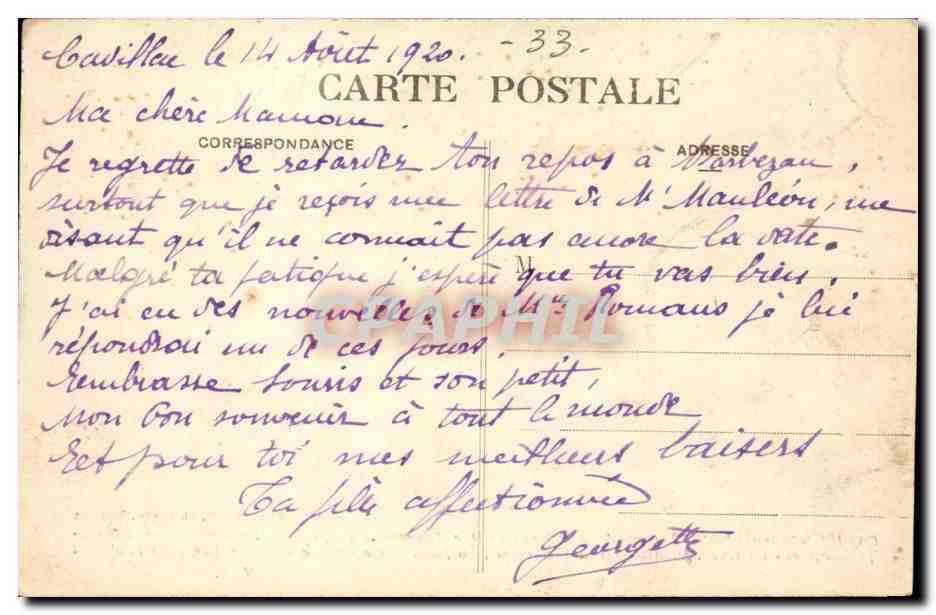 Cavillac le 14 Août 1920. -33.
CARTE POSTALE
Ma chère Mamone.
CORRESPONDANCE
ADRESSE
Je regrette de retarder ton repos à Barbezau,
surtout que je reçois une lettre de Mr Mauléon, me
disant qu'il ne connait pas encore la date.
M
Malgré ta fatigue j'espère que tu vas bien.
J'ai eu des nouvelles de Mme Romans je lui
CPAPHIL
répondrai un de ces jours.
Embrasse Souris et son petit,
Mon bon souvenir à tout le monde
Eet pour toi mes meilleurs baisers
Ta fille affectionnée
Georgette